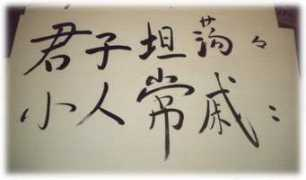 君子坦蕩々
小人常戚〻